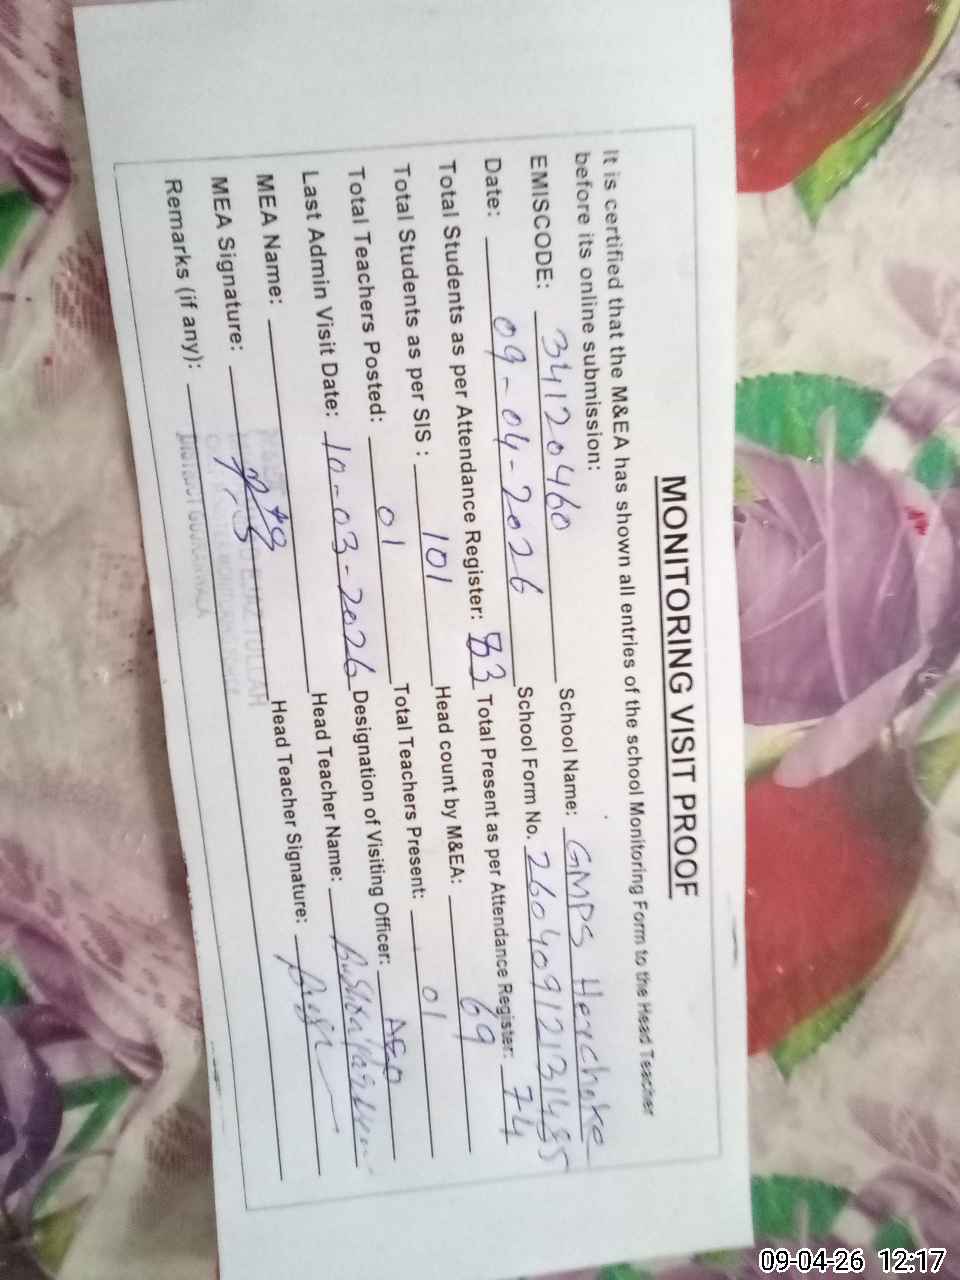 MONITORING VISIT PROOF
It is certified that the M&EA has shown all entries of the school Monitoring Form to the Head Teacher
before its online submission:
EMISCODE: 34120460 School Name: GMPS Harchoke
Date: 09-04-2026 School Form No. 26040912131485
Total Students as per Attendance Register: 83 Total Present as per Attendance Register: 74
Total Students as per SIS : 101 Head count by M&EA: 69
Total Teachers Posted: 01 Total Teachers Present: 01
Last Admin Visit Date: 10-03-2026 Designation of Visiting Officer: AEO
MEA Name: Head Teacher Name: Bushra
MEA Signature: Head Teacher Signature:
Remarks (if any):
09-04-26 12:17